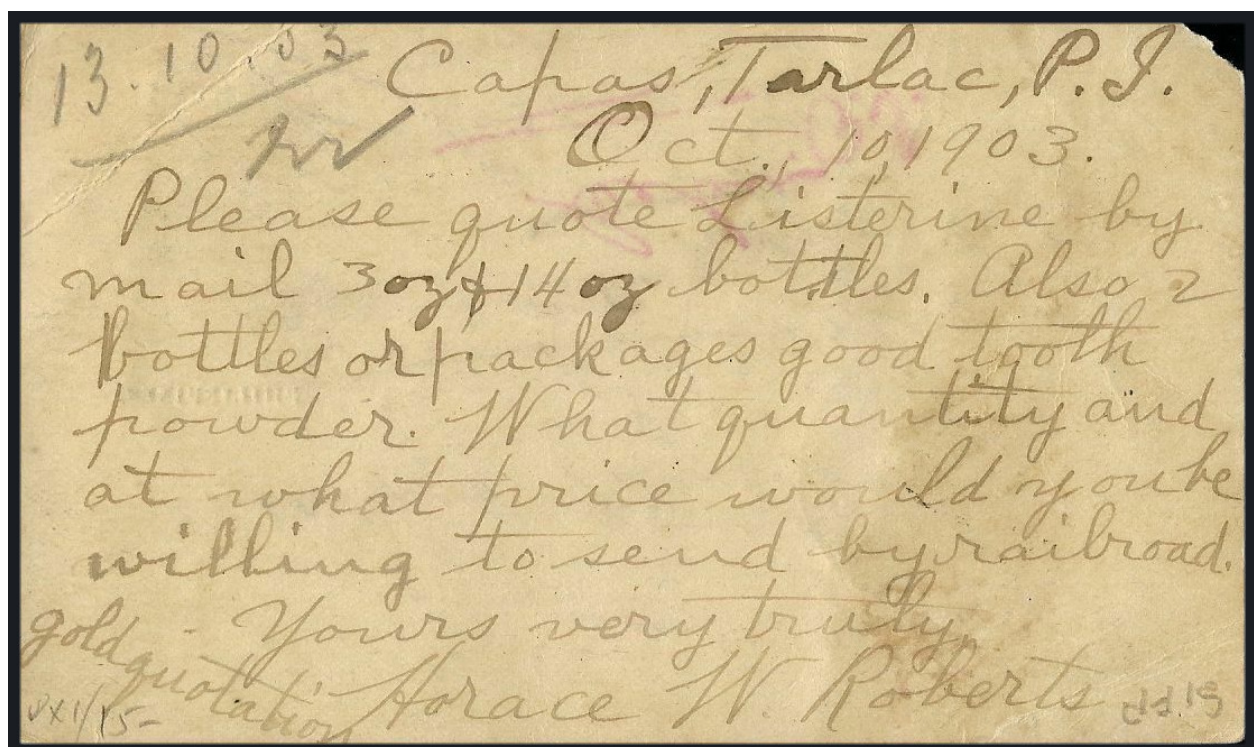 13.10.03
Capas, Tarlac, P.I.
Oct., 10, 1903.
Please quote Listerine by
mail 3oz & 14 oz bottles. Also 2
bottles or packages good tooth
powder. What quantity and
at what price would you be
willing to send by railroad.
Yours very truly,
Horace W. Roberts
gold quotation